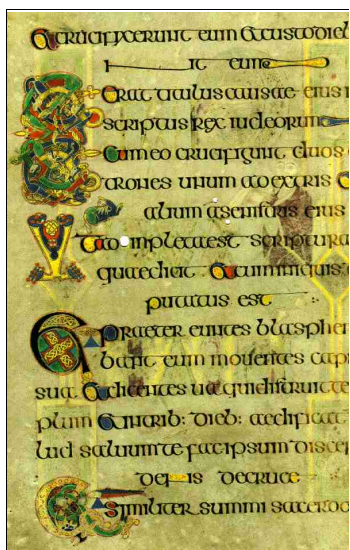 Et crucifixerunt eum Et custodieb
it eum
Erat titulus causae eius i
scriptus rex iudeorum
Et cum eo crucifigunt duos
trones unum adextris
alium asenistris eius
inpleta est scriptura
quae dicit Et cum iniquis
putatus est
Et praeter euntes blasphe
bant eum moventes cap
sua Et dicentes ua qui distruit te
plum Et in trib: dieb: aedificat
lud saluum te fac ipsum discen
decruce
Et similiter summi sacerdo